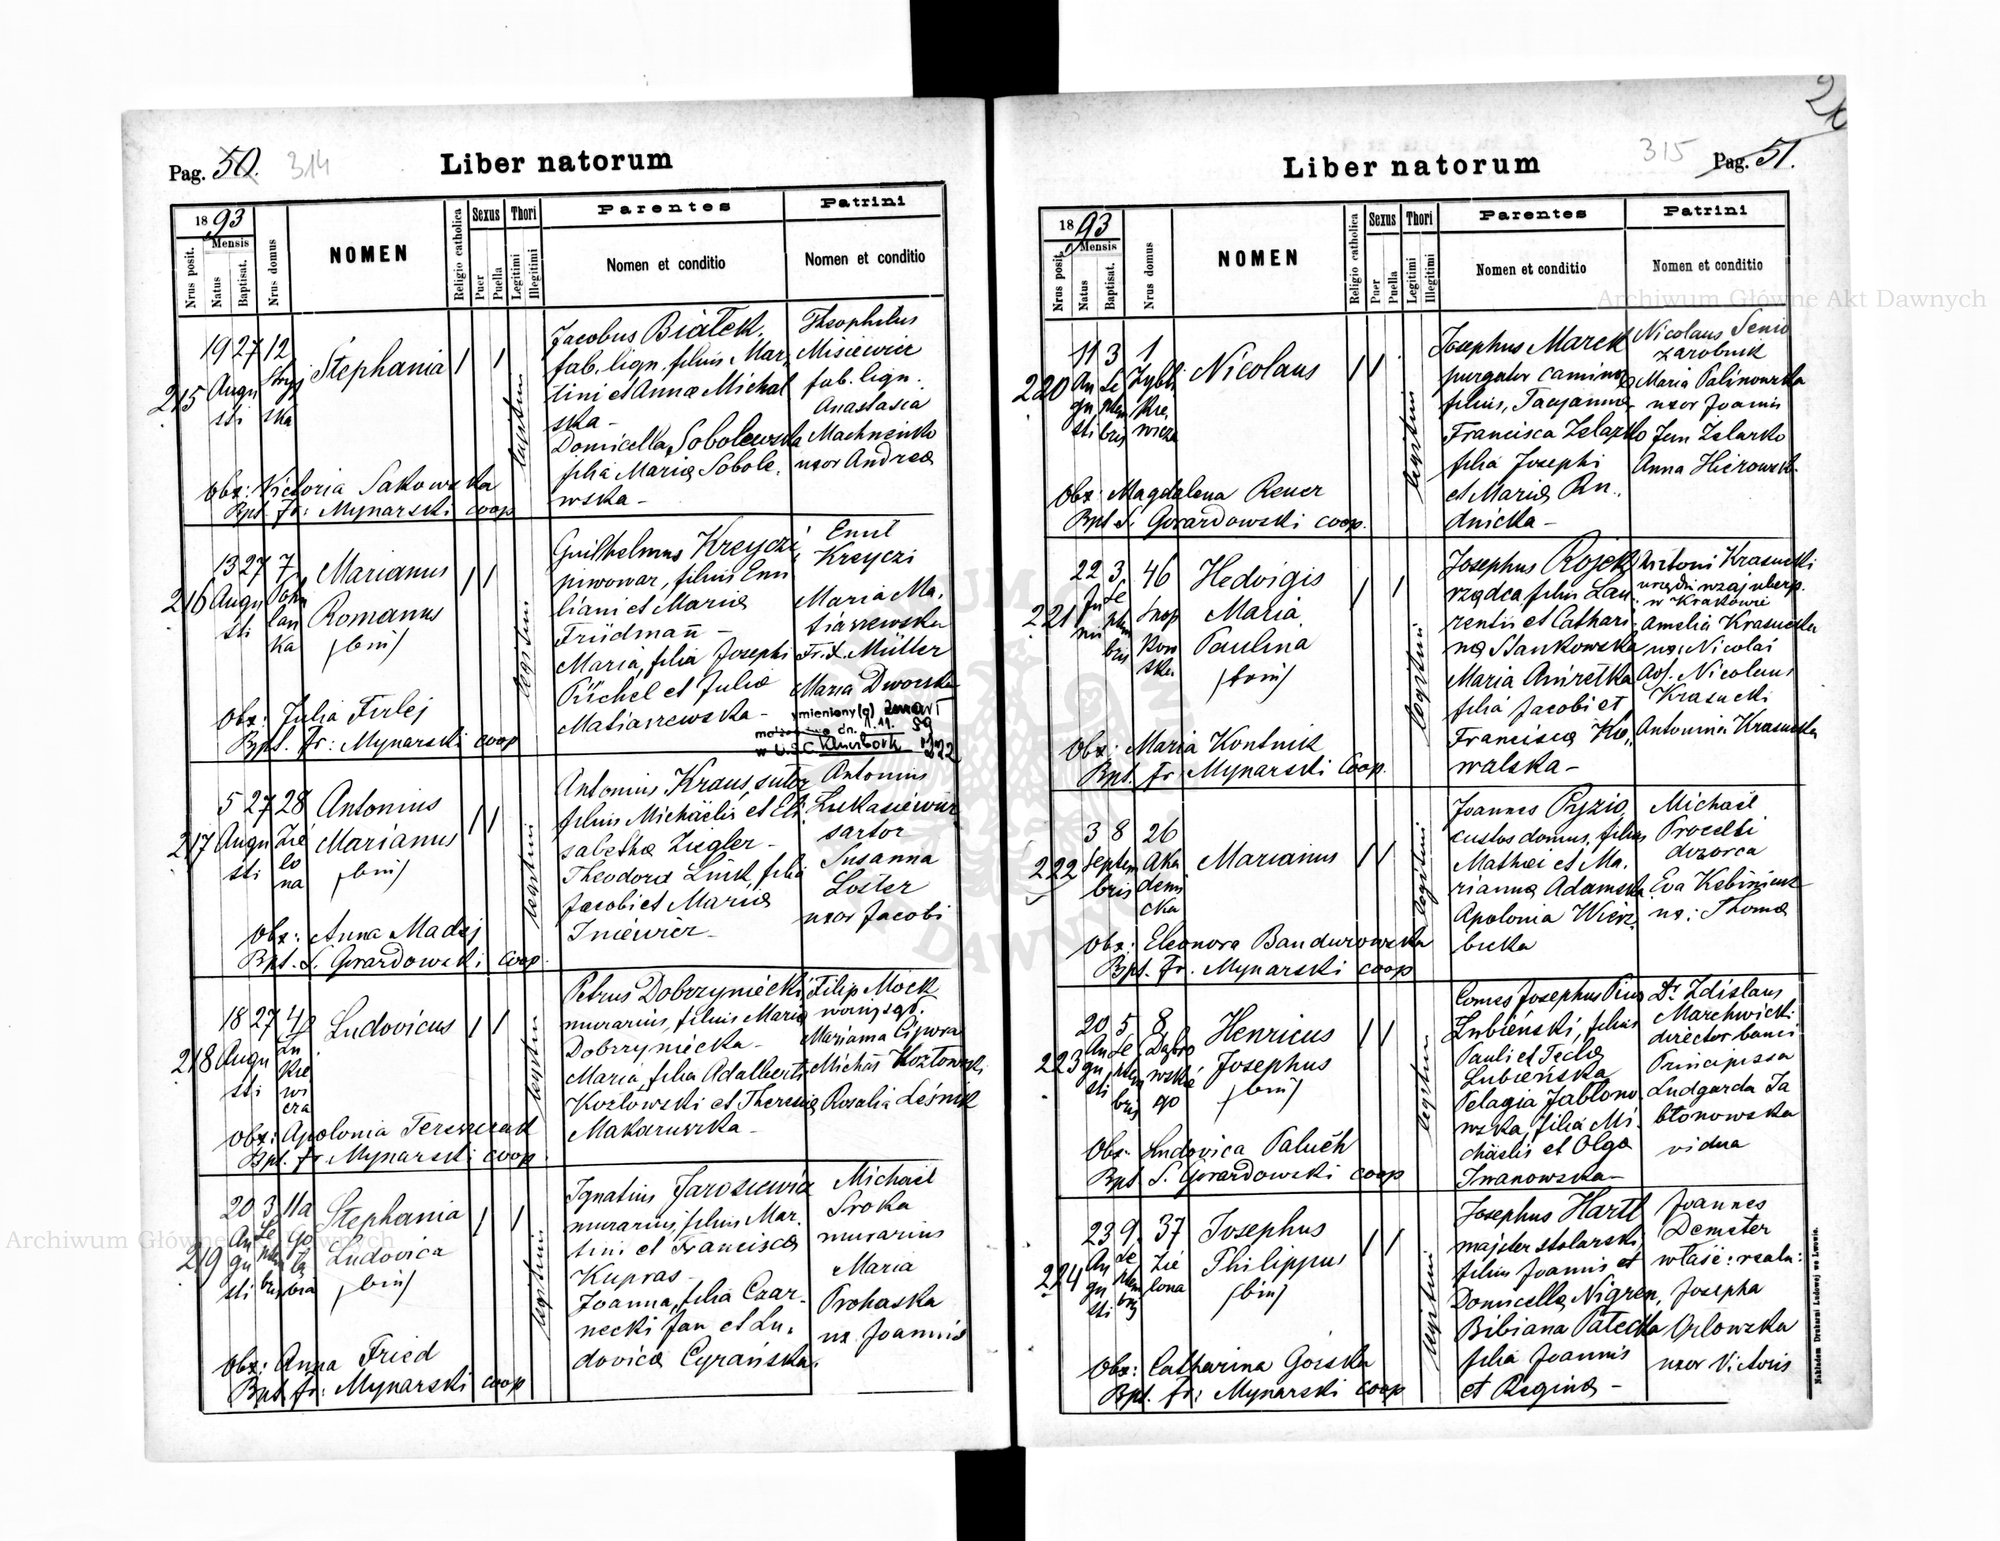 Pag. 50. 314
Liber natorum
1893
Mensis
Nrus posit.
Natus
Baptisat.
Nrus domus
NOMEN
Religio catholica
Sexus
Puer
Puella
Thori
Legitimi
Illegitimi
Parentes
Nomen et conditio
Patrini
Nomen et conditio
215
19 27 12
Augu
sti
Stryj
ska
Stephania
legitimi
Jacobus Białek,
fab. lign. filius Mar,
tini et Anna Michal
ska -
Domicella Sobolewska
filia Maria Sobole,
wska -
Theophilus
Misiewicz
fab. lign.
Anastasia
Machnenko
uxor Andrea
Obs: Victoria Sakowska
Bpt. Fr: Mynarski coop
216
13 27 7
Augu
sti
Pohu
lan
ka
Marianus
Romanus
/bin/
legitimi
Guilhelmus Kreyczi,
piwowar, filius Emi
liani et Maria
Friidmañ -
Maria, filia Josephi
Püchel et Julia
Matiaszewska -
Emil
Kreyczi
Maria Ma,
tiaszewska
Fr. X. Müller
Maria Dworska
ymieniony(a) zawarł
dn. 11.11. 59
w U.S.C. Kluczbork
Obs: Julia Firlej
Bpt. Fr: Mynarski coop
217
5 27 28
Augu
sti
Zie
lo
na
Antonius
Marianus
/bin/
legitimi
Antonius Kraus, sutor
filius Michäelis et Eli
sabetha Ziegler -
Theodora Linck, filia
Jacobi et Maria
Iniewicz -
Antonius
Łukasiewicz
sartor
Susanna
Loster
uxor Jacobi
Obs: Anna Madej
Bpt. S. Gorardowski coop.
218
18 27 4
Augu
sti
Zu
kie
wi
cza
Ludovicus
legitimi
Petrus Dobrzyniecki
murarius, filius Maria
Dobrzyniecka -
Maria, filia Adalberti
Kozłowski et Theresia
Makaruszka -
Filip Mock
woźny sąd.
Marianna Cipwra
Michał Kozłowski
Rozalia Leśnik
Obs: Apolonia Tereszczuk
Bpt. Fr. Mynarski coop.
219
20 3 11a
Au
gu
sti
Se
ptem
bris
Go
łę
bia
Stephania
Ludovica
/bin/
legitimi
Ignatius Jarosiewicz
murarius, filius Mar,
tini et Francisca
Kupras -
Joanna, filia Czar-
necki Jan et Lu,
dovica Cyrańska.
Michael
Sroka
murarius
Maria
Prohaska
ux. Joannis
Obs: Anna Fried
Bpt. Fr: Mynarski coop
Liber natorum
315 Pag. 51.
1893
Mensis
Nrus posit.
Natus
Baptisat.
Nrus domus
NOMEN
Religio catholica
Sexus
Puer
Puella
Thori
Legitimi
Illegitimi
Parentes
Nomen et conditio
Patrini
Nomen et conditio
220
11 3 1
Au
gu
sti
Se
ptem
bris
Zybli
kie,
wicza
Nicolaus
legitimi
Josephus Marek
purgator camino
filius, Tacyanna
Francisca Zelazko
filia Josephi
et Maria Ru,,
dnicka -
Nicolaus Senio
zarobnik
Maria Palinowska
uxor Joannis
Jan Zelazko
Anna Hierowsk.
Obs: Magdalena Reuer
Bpt S. Gorardowski coop.
221
22 3 46
Ju
nii
Se
ptem
bris
Snop
kow
ska
Hedvigis
Maria
Paulina
/trin/
legitimi
Josephus Rojek
rządca, filius Lau
rentii et Cathari
na Stankowska
Maria
filia Jacobi et
Francisca Ko,,
walska -
Antoni Krasucki
w Krakowie
Amelia Krasucka
ux. Nicolai
Ass. Nicolaus
Krasucki
Antonina Krasucka
Obs: Maria Kontnik
Bpt. Fr. Mynarski Coop.
222
3 8 26
Septem
bris
Aka
demi
cka
Marianus
legitimi
Joannes Pyzio,
custos domus, filius
Mathiei et Ma,
rianna Adamska
Apolonia Wierz,
bicka
Michael
Procelli
dozorca
Eva Kebiniuk
ux: Thoma
Obs: Eleonora Bandurowska
Bpt. Fr. Mynarski coop
223
20 5 8
Au
gu
sti
Se
ptem
bris
Dąbro
wskie
go
Henricus
Josephus
/bin/
legitimi
Comes Josephus Pius
Łubieński, filius
Pauli et Tecla
Łubieńska
Pelagia Jabłono
wska, filia Mi.
chäelis et Olga
Iwanowska -
Dr. Zdislaus
Marchwicki
director banci
Principissa
Ludgarda Ja
błonowska
vidua
Obs. Ludovica Paluch
Bpt S. Gorardowski coop
224
23 9 37
Au
gu
sti
Se
ptem
bris
Zie
lona
Josephus
Philippus
/bin/
legitimi
Josephus Hartl
majster stolarski,
filius Joannis et
Domicella Nigren,
Bibiana Patecka
filia Joannis
et Regina -
Joannes
Demeter
właśc: realn:
Josepha
Orłowska
uxor Victoris
Obs: Catharina Gorska
Bpt. Fr: Mynarski coop
Nakładem Drukarni Ludowej we Lwowie.
Archiwum Główne Akt Dawnych
Archiwum Główne Akt Dawnych